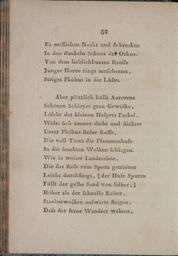 52
Es meßlichen Nacht und Schrecken
In den dunkeln Schoos der Orkus.
Von dem lieblichbunten Kreise
Junger Horen rings umschwermt,
Steiget Phöbus in die Lüfte.
Aber plötzlich hüllt Aurorens
Schönen Schleyer grau Gewölke,
Löscht des kleinen Hespers Fackel,
Wälzt sich immer dicht und dichter
Unter Phöbus stolze Rosse,
Die voll Trotz die Flammenhufe
In die feuchten Wolken schlagen.
Wie in weiter Landstrecken,
Die das Roß vom Sporn getrieben
Leicht durchfliegt, (der Huf Spuren
Füllt der gelbe Sand von selber;)
Höher als der schnelle Reiter
Staubwolken aufwärts steigen,
Daß der ferne Wandrer wähnet,